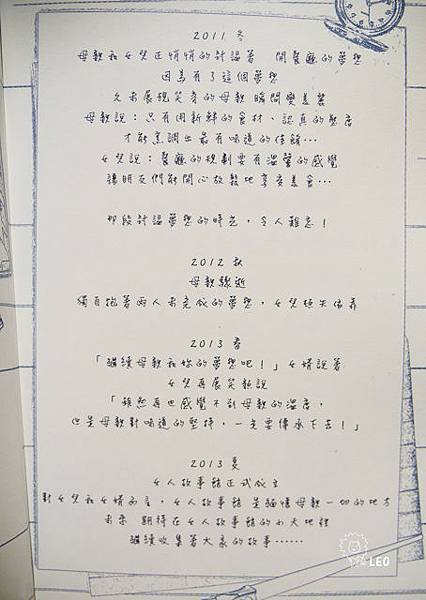 2011 冬
母親和女兒正悄悄的討論著 開餐廳的夢想
因為有了這個夢想
久未展現笑容的母親 瞬間變美麗
母親說：只有用新鮮的食材，認真的態度
才能烹調出最有味道的佳餚…
女兒說：餐廳的規劃要有溫馨的感覺
讓朋友們能開心放鬆地享受美食…
那段討論夢想的時光，令人難忘！
2012 秋
母親驟逝
獨自抱著兩人未完成的夢想，女兒頓失依靠
2013 春
「繼續母親和妳的夢想吧！」女婿說著
女兒再展笑靨說
「雖然再也感覺不到母親的溫度，
但是母親對味道的堅持，一定要傳承下去！」
2013 夏
女人故事館正式成立
對女兒和女婿而言，女人故事館 是緬懷母親一切的地方
未來 期待在女人故事館的小天地裡
繼續收集著大家的故事……
LEO